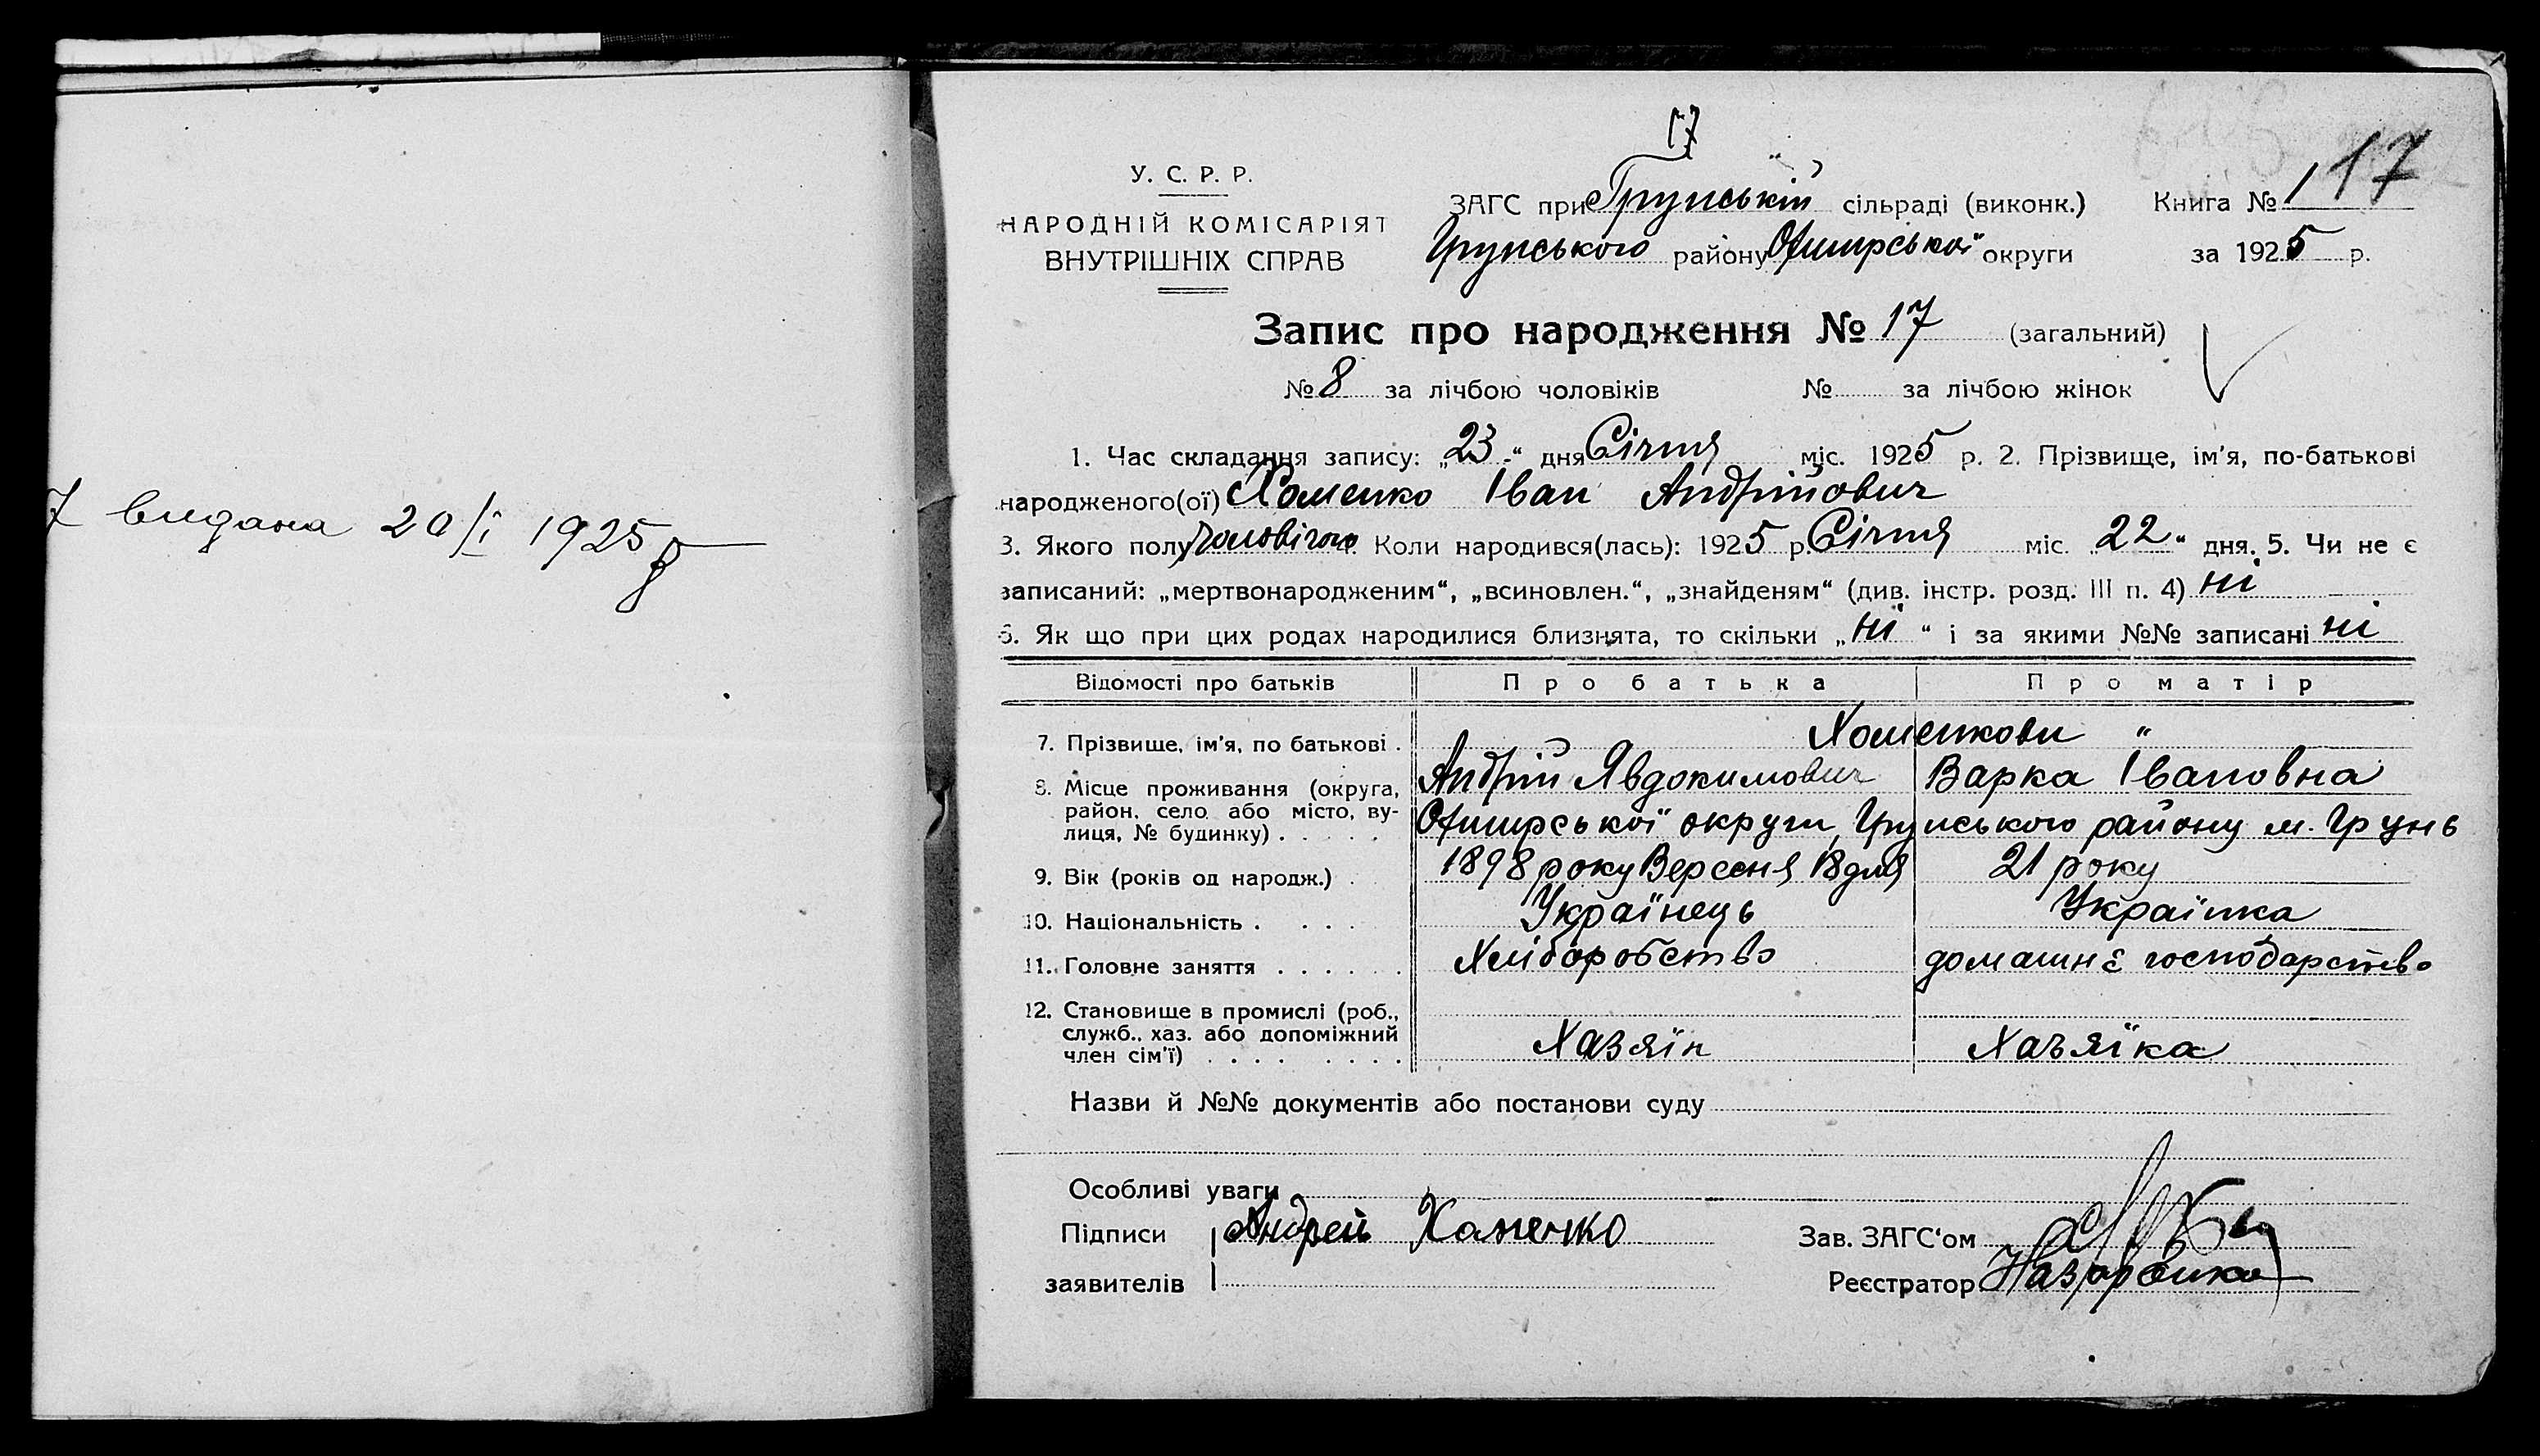 видана 20/I 1925 р
17
17
У. С. Р. Р.
НАРОДНІЙ КОМІСАРІЯТ
ВНУТРІШНІХ СПРАВ
ЗАГС при Грунській сільраді (виконк.) Книга № 1
Грунського району Охтирської округи за 1925 р.
Запис про народження № 17 (загальний)
№ 8 за лічбою чоловіків № за лічбою жінок
1. Час складання запису: „23“ дня Січня міс. 1925 р. 2. Прізвище, ім'я, по-батькові
народженого(ої) Хоменко Іван Андрійович
3. Якого полу чоловічого Коли народився(лась): 1925 р. Січня міс. „22“ дня. 5. Чи не є
записаний: „мертвонародженим“, „всиновлен.“, „знайденям“ (див. інстр. розд. III п. 4) ні
6. Як що при цих родах народилися близнята, то скільки „ні“ і за якими №№ записані ні
Відомості про батьків Про батька Про матір
7. Прізвище, ім'я, по батькові . Хоменкови "
Андрій Явдокимович Варка Івановна
8. Місце проживання (округа,
район, село або місто, ву-
лиця, № будинку) . . . . . Охтирської округи, Грунського району м. Грунь
9. Вік (років од народж.) . 1898 року Вересня 18 дня 21 року
10. Національність . . . . Українець Українка
11. Головне заняття . . . . . . Хліборобство домашнє господарство
12. Становище в промислі (роб.,
служб., хаз. або допоміжний
член сім'ї) . . . . . . . . Хазяїн Хазяїка
Назви й №№ документів або постанови суду
Особливі уваги
Підписи Андрей Хоменко Зав. ЗАГС'ом
заявителів Реєстратор Назаренко